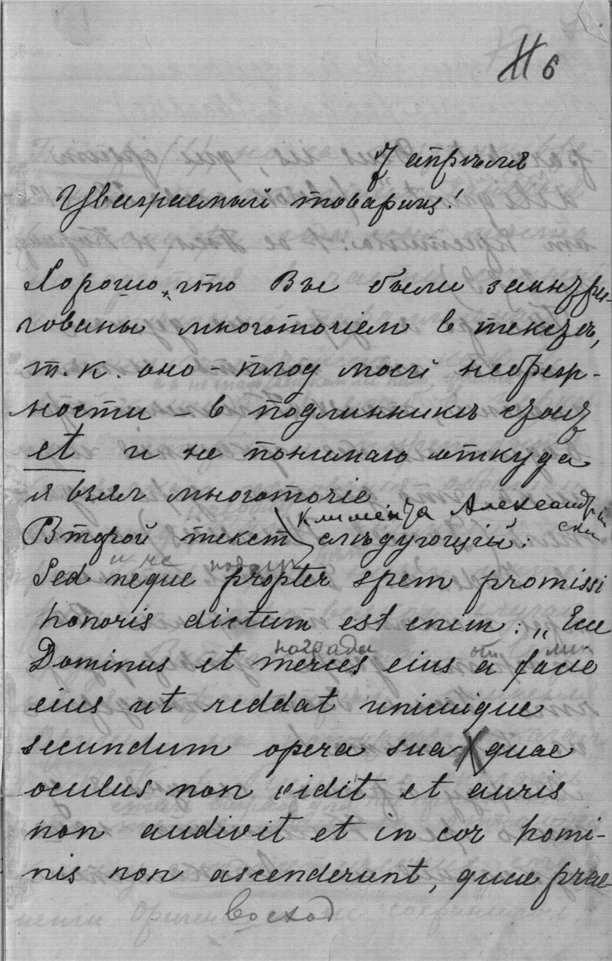 № 6
7 апрѣля
Уважаемый товарищ!
Хорошо, что Вы были заинтри-
гованы многоточіем в текстѣ,
т.к. оно – плод моей небреж-
ности – в подлинникѣ стоит
et и не понимаю откуда
я взял многоточіе
Климента Александрій
ски
Второй текст слѣдующій:
и не
Sed neque propter spem promissi
honoris dictum est enim: „Ecce
награда
Dominus et merces eius a facie
eius ut reddat unicuique
secundum opera sua quae
oculus non vidit et auris
non audivit et in cor homi-
nis non ascenderunt, quae prae-
восход